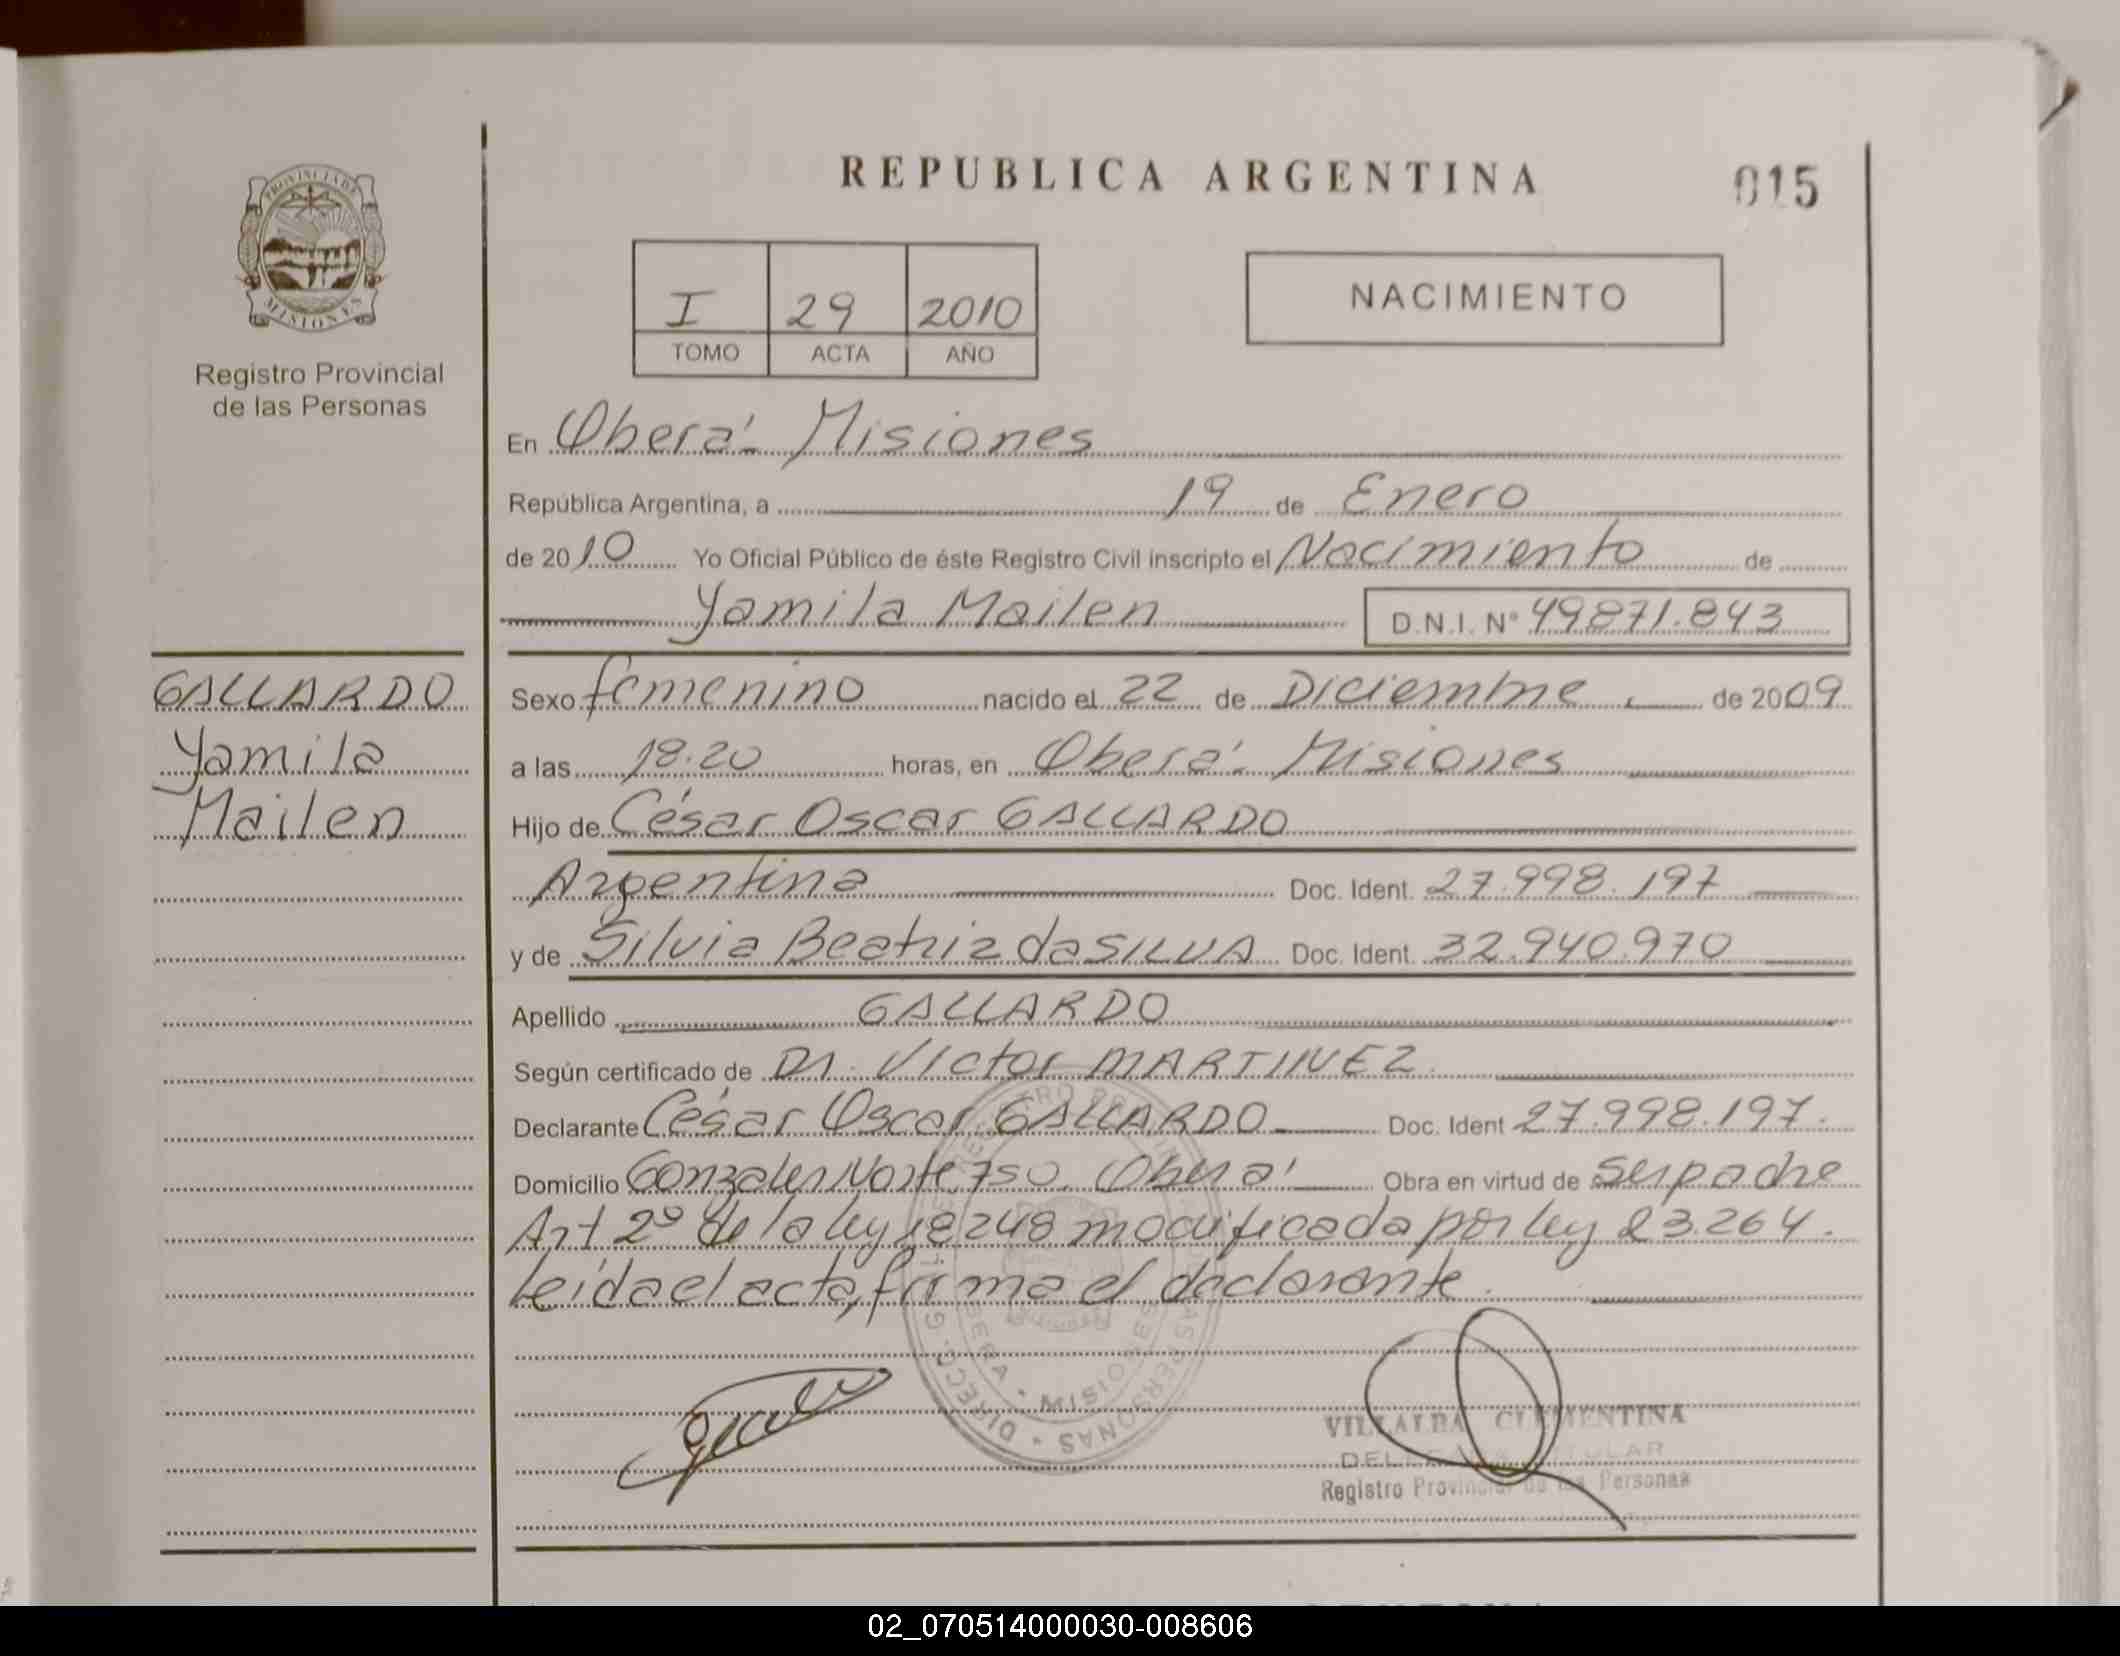 REPUBLICA ARGENTINA
015
PROVINCIA DE
MISIONES
Registro Provincial
de las Personas
I 29 2010
TOMO ACTA AÑO
NACIMIENTO
En Oberá - Misiones
República Argentina, a 19 de Enero
de 2010 Yo Oficial Público de éste Registro Civil inscripto el Nacimiento de
Yamila Mailen D.N.I. Nº 49871.843
GALLARDO
Yamila
Mailen
Sexo femenino nacido el 22 de Diciembre de 2009
a las 18.20 horas, en Oberá - Misiones
Hijo de César Oscar GALLARDO
Argentina Doc. Ident. 27.998.197
y de Silvia Beatriz da SILVA Doc. Ident. 32.940.970
Apellido GALLARDO
Según certificado de Dr. Victor MARTINEZ
Declarante César Oscar GALLARDO Doc. Ident 27.998.197.
Domicilio Gonzales Norte 750. Oberá Obra en virtud de ser padre
Art 2º de la ley 18248 modificada por ley 23.264.
Leida el acta, firma el declarante.
VILLALBA CLEMENTINA
DELEGADA TITULAR
Registro Provincial de las Personas
02_070514000030-008606